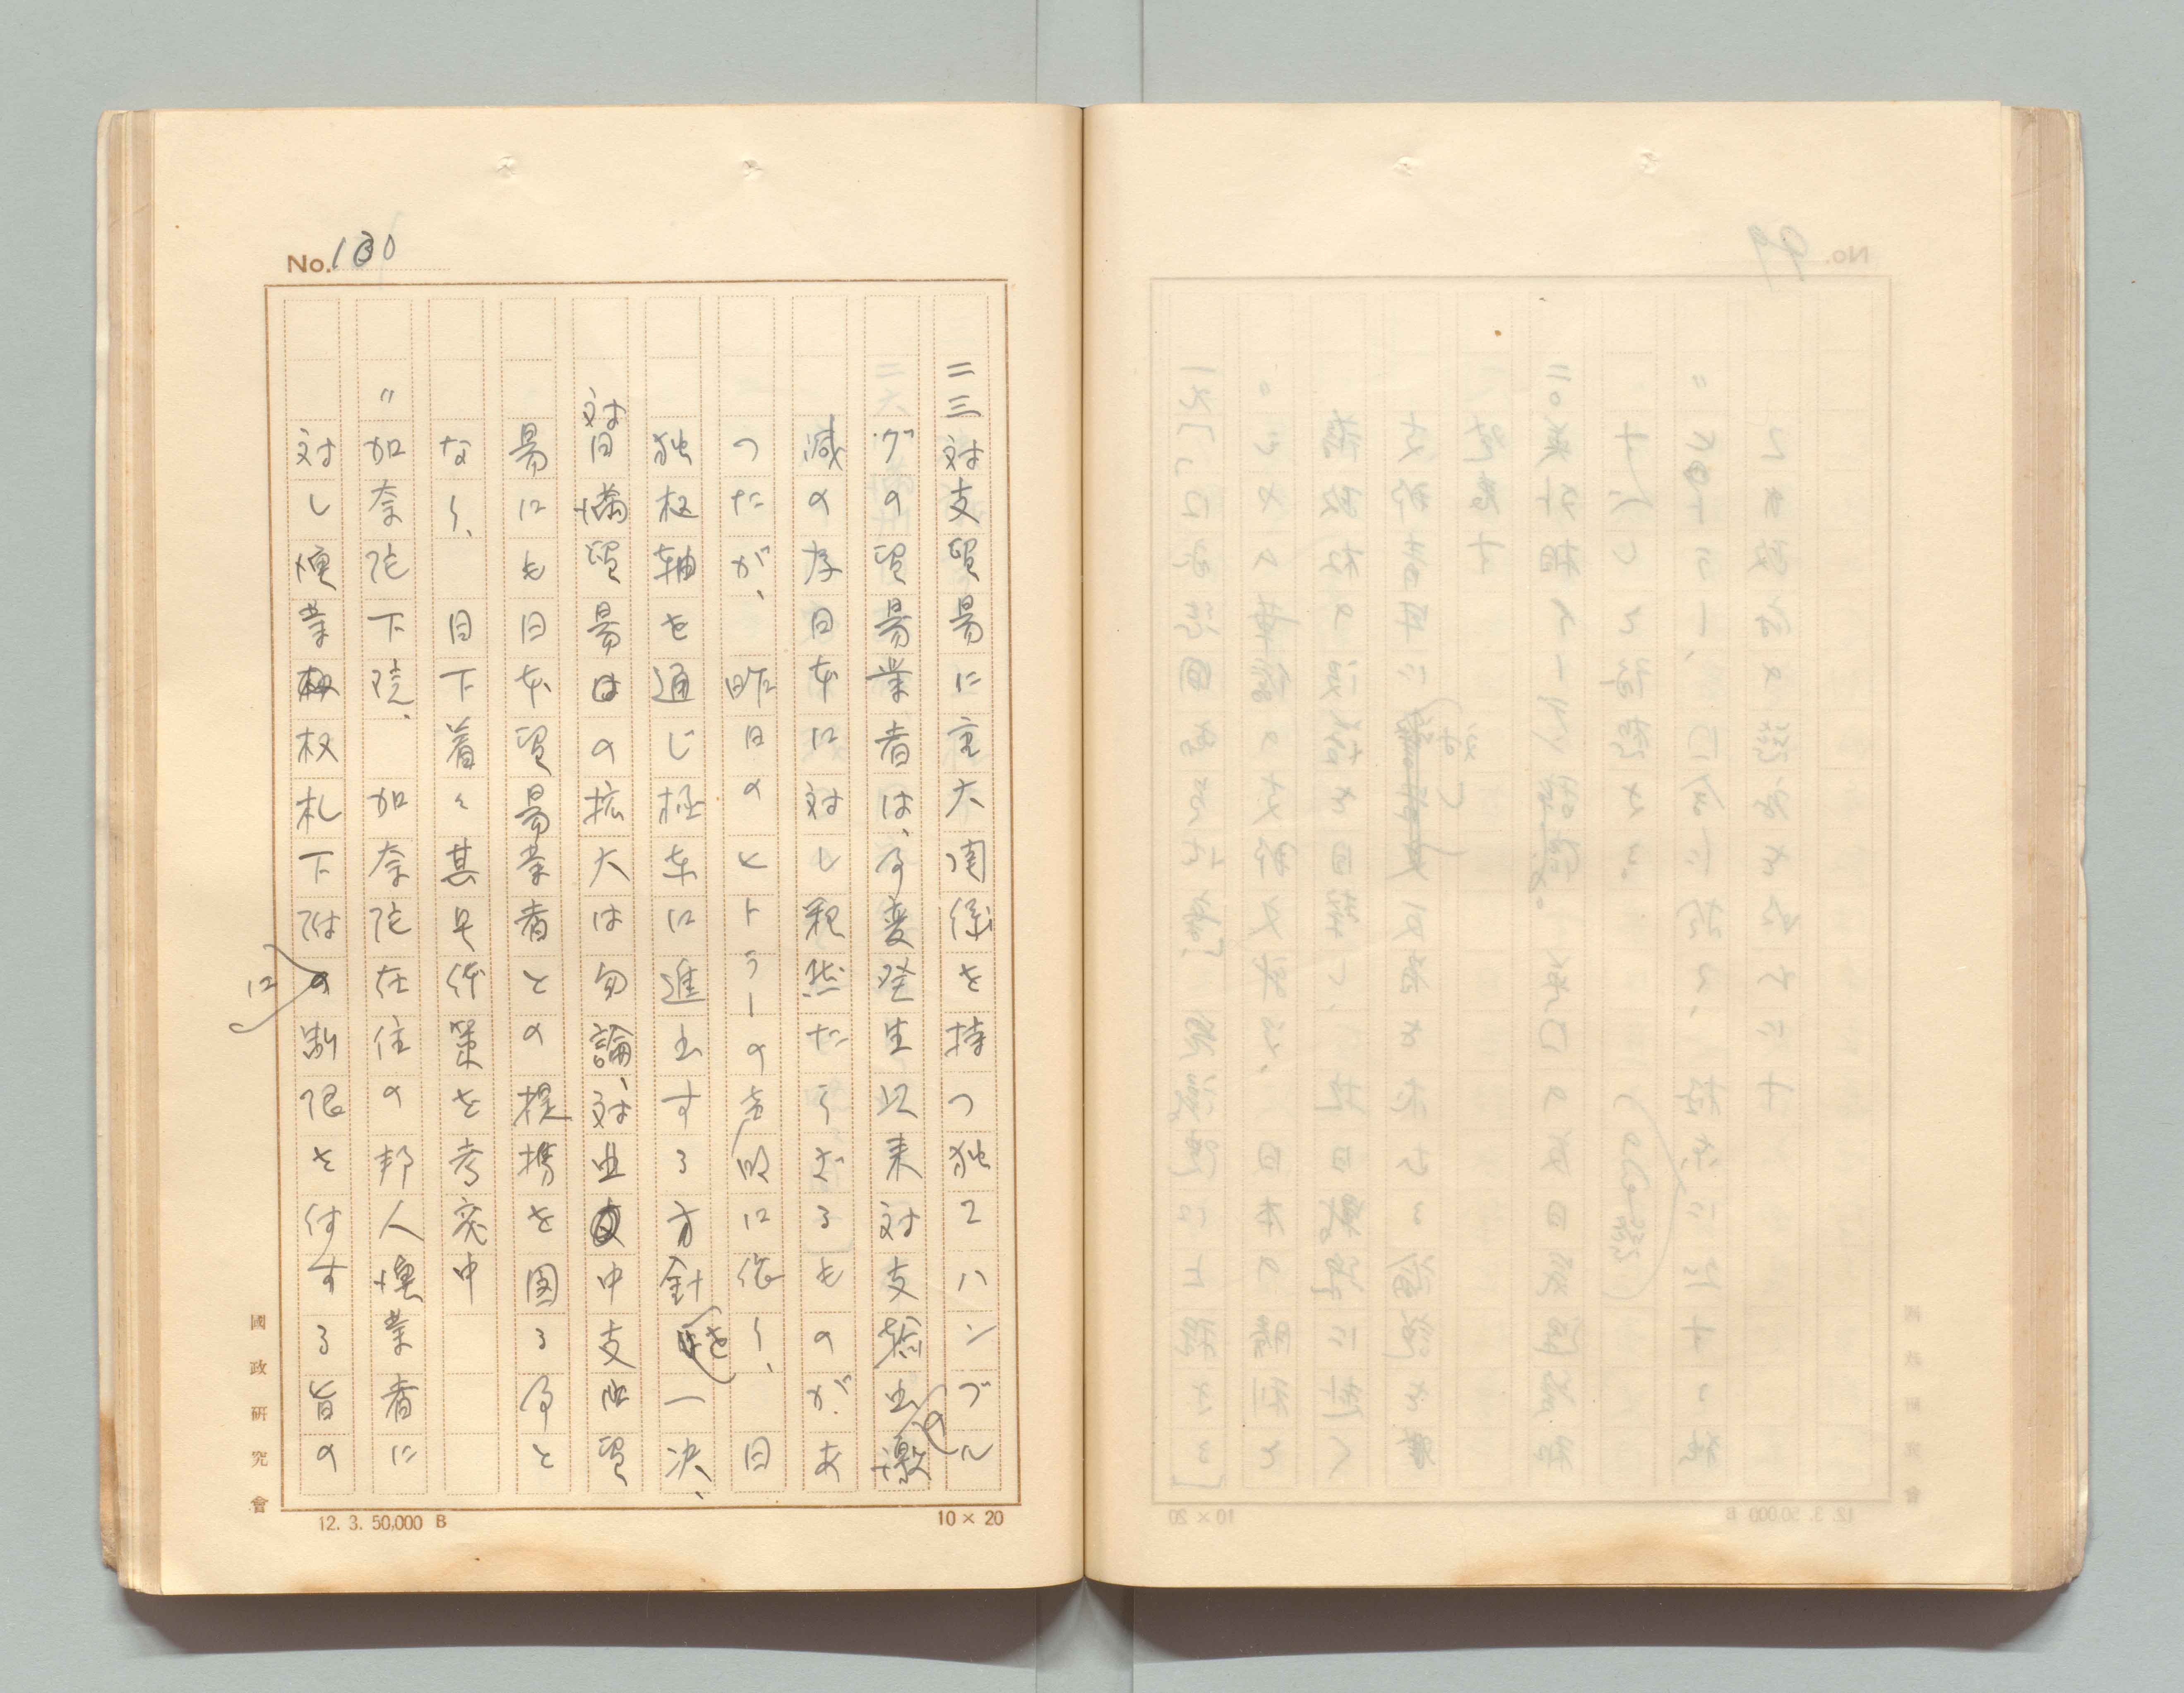 No. 100
二三対支貿易に重大関係を持つ独乙ハンブル
グの貿易業者は、事変発生以来対支輸出の激
減の為日本に対し釈然たらざるものがあ
つたが、昨日のヒトラーの声明に依り、日
独枢軸を通じ極東に進出する方針を一決、
対日満貿易はの拡大は勿論、対北支中支貿
易にも日本貿易業者との提携を図る事と
なり、目下着々其具体策を考究中
〃加奈陀下院、加奈陀在住の邦人漁業者に
対し漁業権札下附に制限を付する旨の
國政研究會
12. 3. 50,000 B
10 × 20